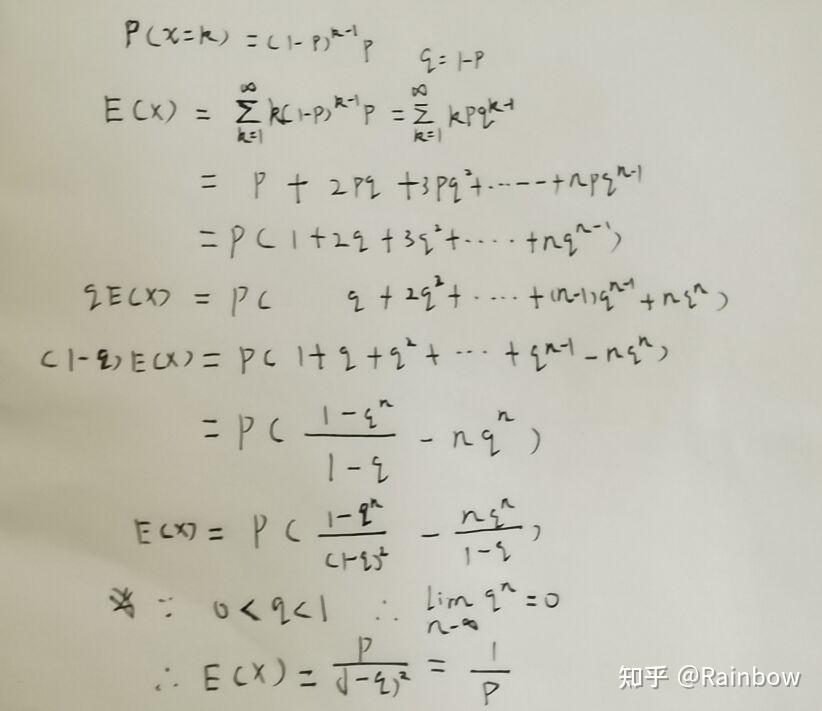 P(x=k) = (1-p)^{k-1} p
q = 1-p
E(X) = \sum_{k=1}^{∞} k(1-p)^{k-1} p = \sum_{k=1}^{∞} kpq^{k-1}
= p + 2pq + 3pq^2 + ····· + npq^{n-1}
= p(1+2q+3q^2+····+nq^{n-1})
qE(X) = p( q+2q^2+····+(n-1)q^{n-1}+nq^n)
(1-q)E(X) = p(1+q+q^2+···+q^{n-1}-nq^n)
= p(\frac{1-q^n}{1-q} - nq^n)
E(X) = p(\frac{1-q^n}{(1-q)^2} - \frac{nq^n}{1-q})
∵ 0<q<1 ∴ \lim_{n→∞} q^n = 0
∴ E(X) = \frac{p}{(1-q)^2} = \frac{1}{p}
知乎 @Rainbow